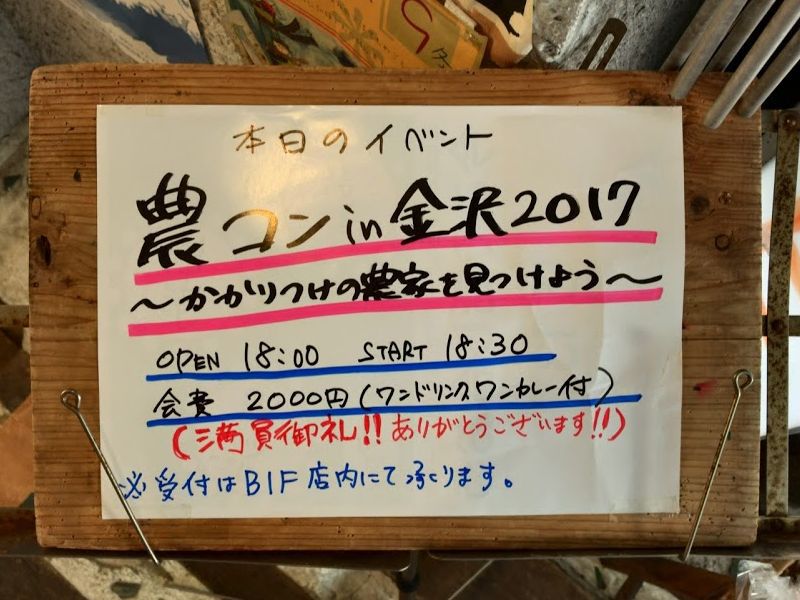 本日のイベント
農コン in 金沢2017
〜かかりつけの農家を見つけよう〜
OPEN 18:00 START 18:30
会費 2000円(ワンドリンクワンカレー付)
(満員御礼!!ありがとうございます!!)
※受付はB1F店内にて承ります。